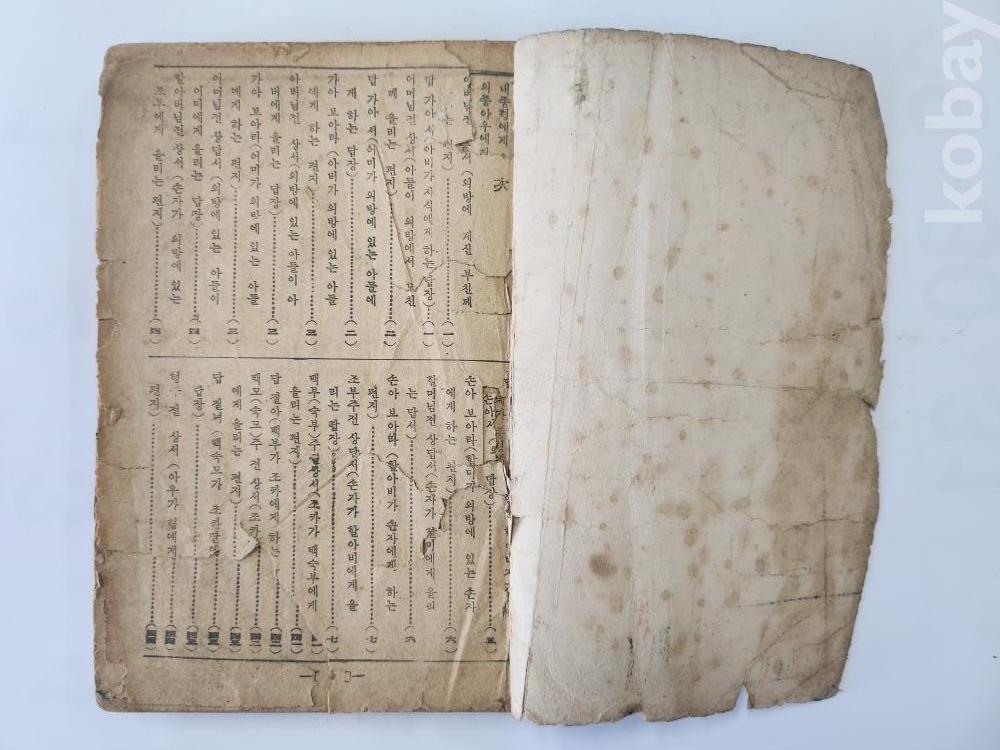 내종형에게
외종아우에게
次
서 (외방에 계신 부친께
는 편지)……(一)
답 가아 서(아비가 자식에게 하는 답장)……(一)
어머님전 상서(아들이 외방에서 모친
께 올리는 편지)……(二)
답 가아 서(어미가 외방에 있는 아들에
게 하는 답장)……(二)
가아 보아라(아비가 외방에 있는 아들
에게 하는 편지)……(三)
아버님전 상서(외방에 있는 아들이 아
버에게 올리는 답장)……(三)
가아 보아라(어미가 외방에 있는 아들
에게 하는 편지)……(三)
어머님전 상답서(외방에 있는 아들이
어미에게 올리는 답장)……(四)
할아버님전 상서(손자가 외방에 있는
조부에게 올리는 편지)……(四)
손아서
답장)……(五)
손아 보아라(할미가 외방에 있는 손자
에게 하는 편지)……(六)
할머님전 상답서(손자가 할미에게 올리
는 답서)……(六)
손아 보아라(할아비가 손자에게 하는
편지)……(七)
조부주전 상답서(손자가 할아비에게 올
리는 답장)……(七)
백부(숙부)주전상서(조카가 백숙부에게
올리는 편지)
답 질아(백부가 조카에게 하는
백모(숙모)주 전 상서(조카
에게 올리는 편지)
답 질녀(백숙모가 조카딸에
답장)
전 상서(아우가 형에게
편지)
kobay